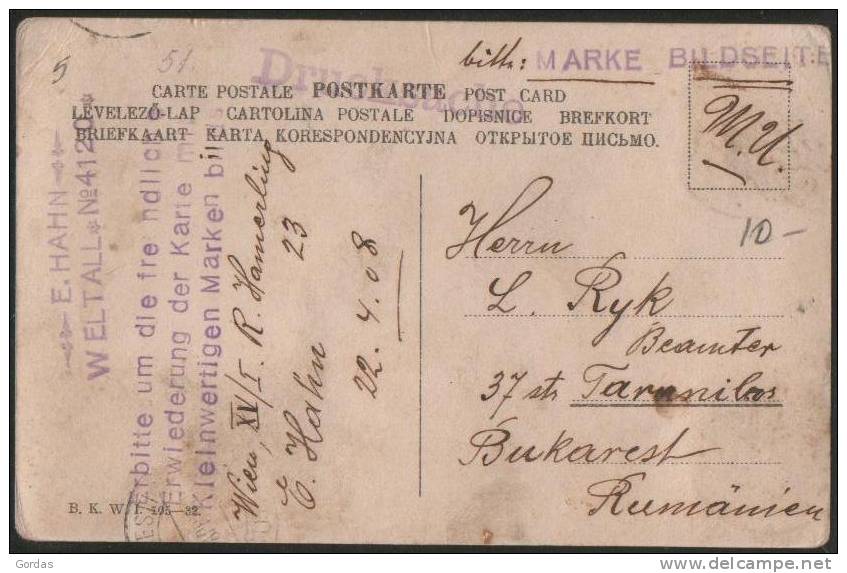 5
51.
Drucksache
bitte: MARKE BILDSEITE
CARTE POSTALE POSTKARTE POST CARD
LEVELEZŐ-LAP CARTOLINA POSTALE DOPISNICE BREFKORT
BRIEFKAART KARTA KORESPONDENCYJNA ОТКРЫТОЕ ПИСЬМО.
M.U.
10-
E. HAHN
WELTALL No 412
Erbitte um die fre ndliche
Erwiederung der Karte m
Kleinwertigen Marken bil
Wien, XV/I. R. Hamerling
23
E. Hahn
22. 4. 08
Herrn
L. Ryk
Beamter
37 str
Bukarest
Rumänien
B. K. W. I. 105-32.
Gordas
delcampe.net